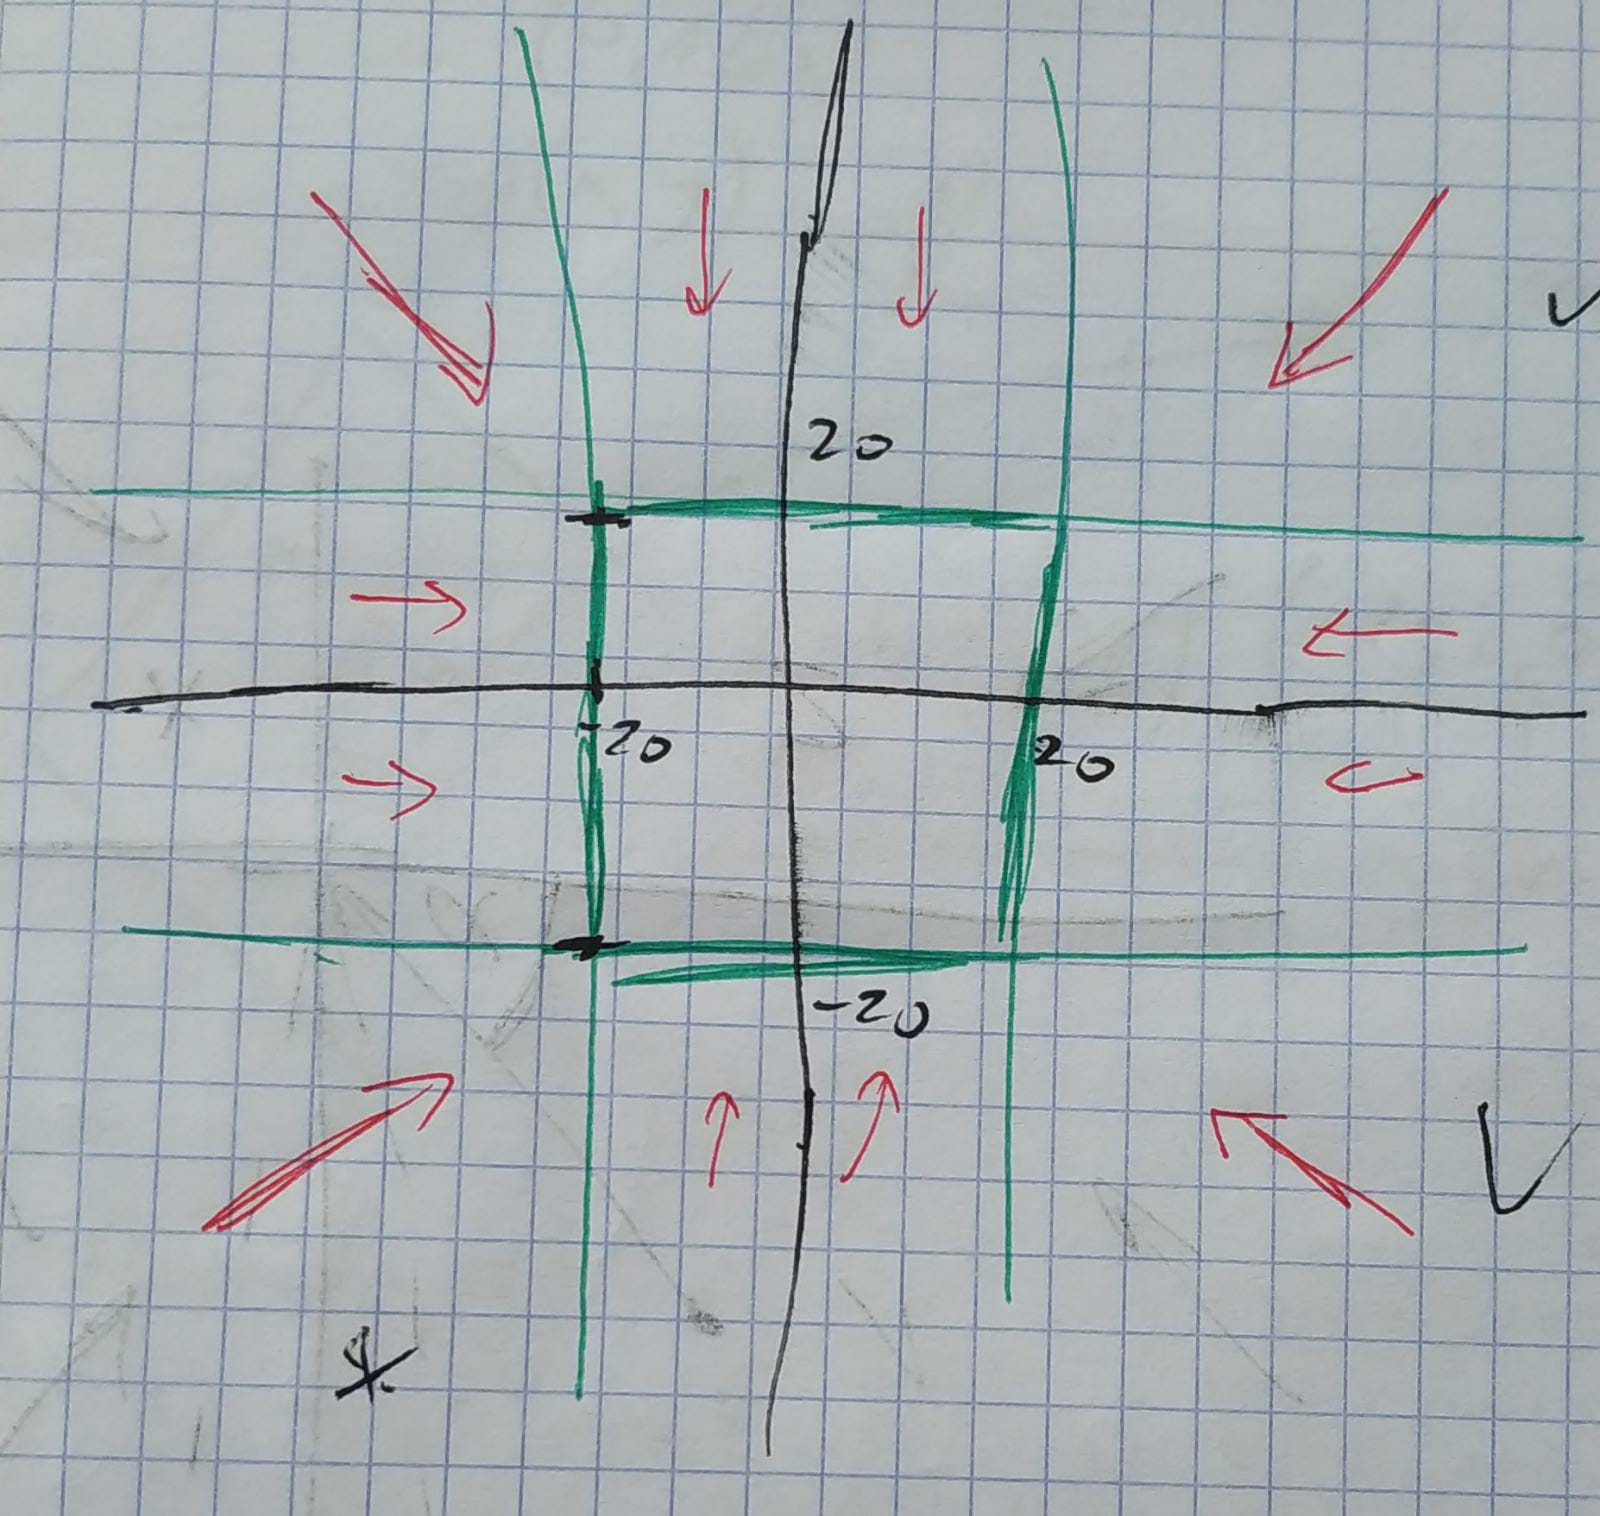 20
-20
20
-20